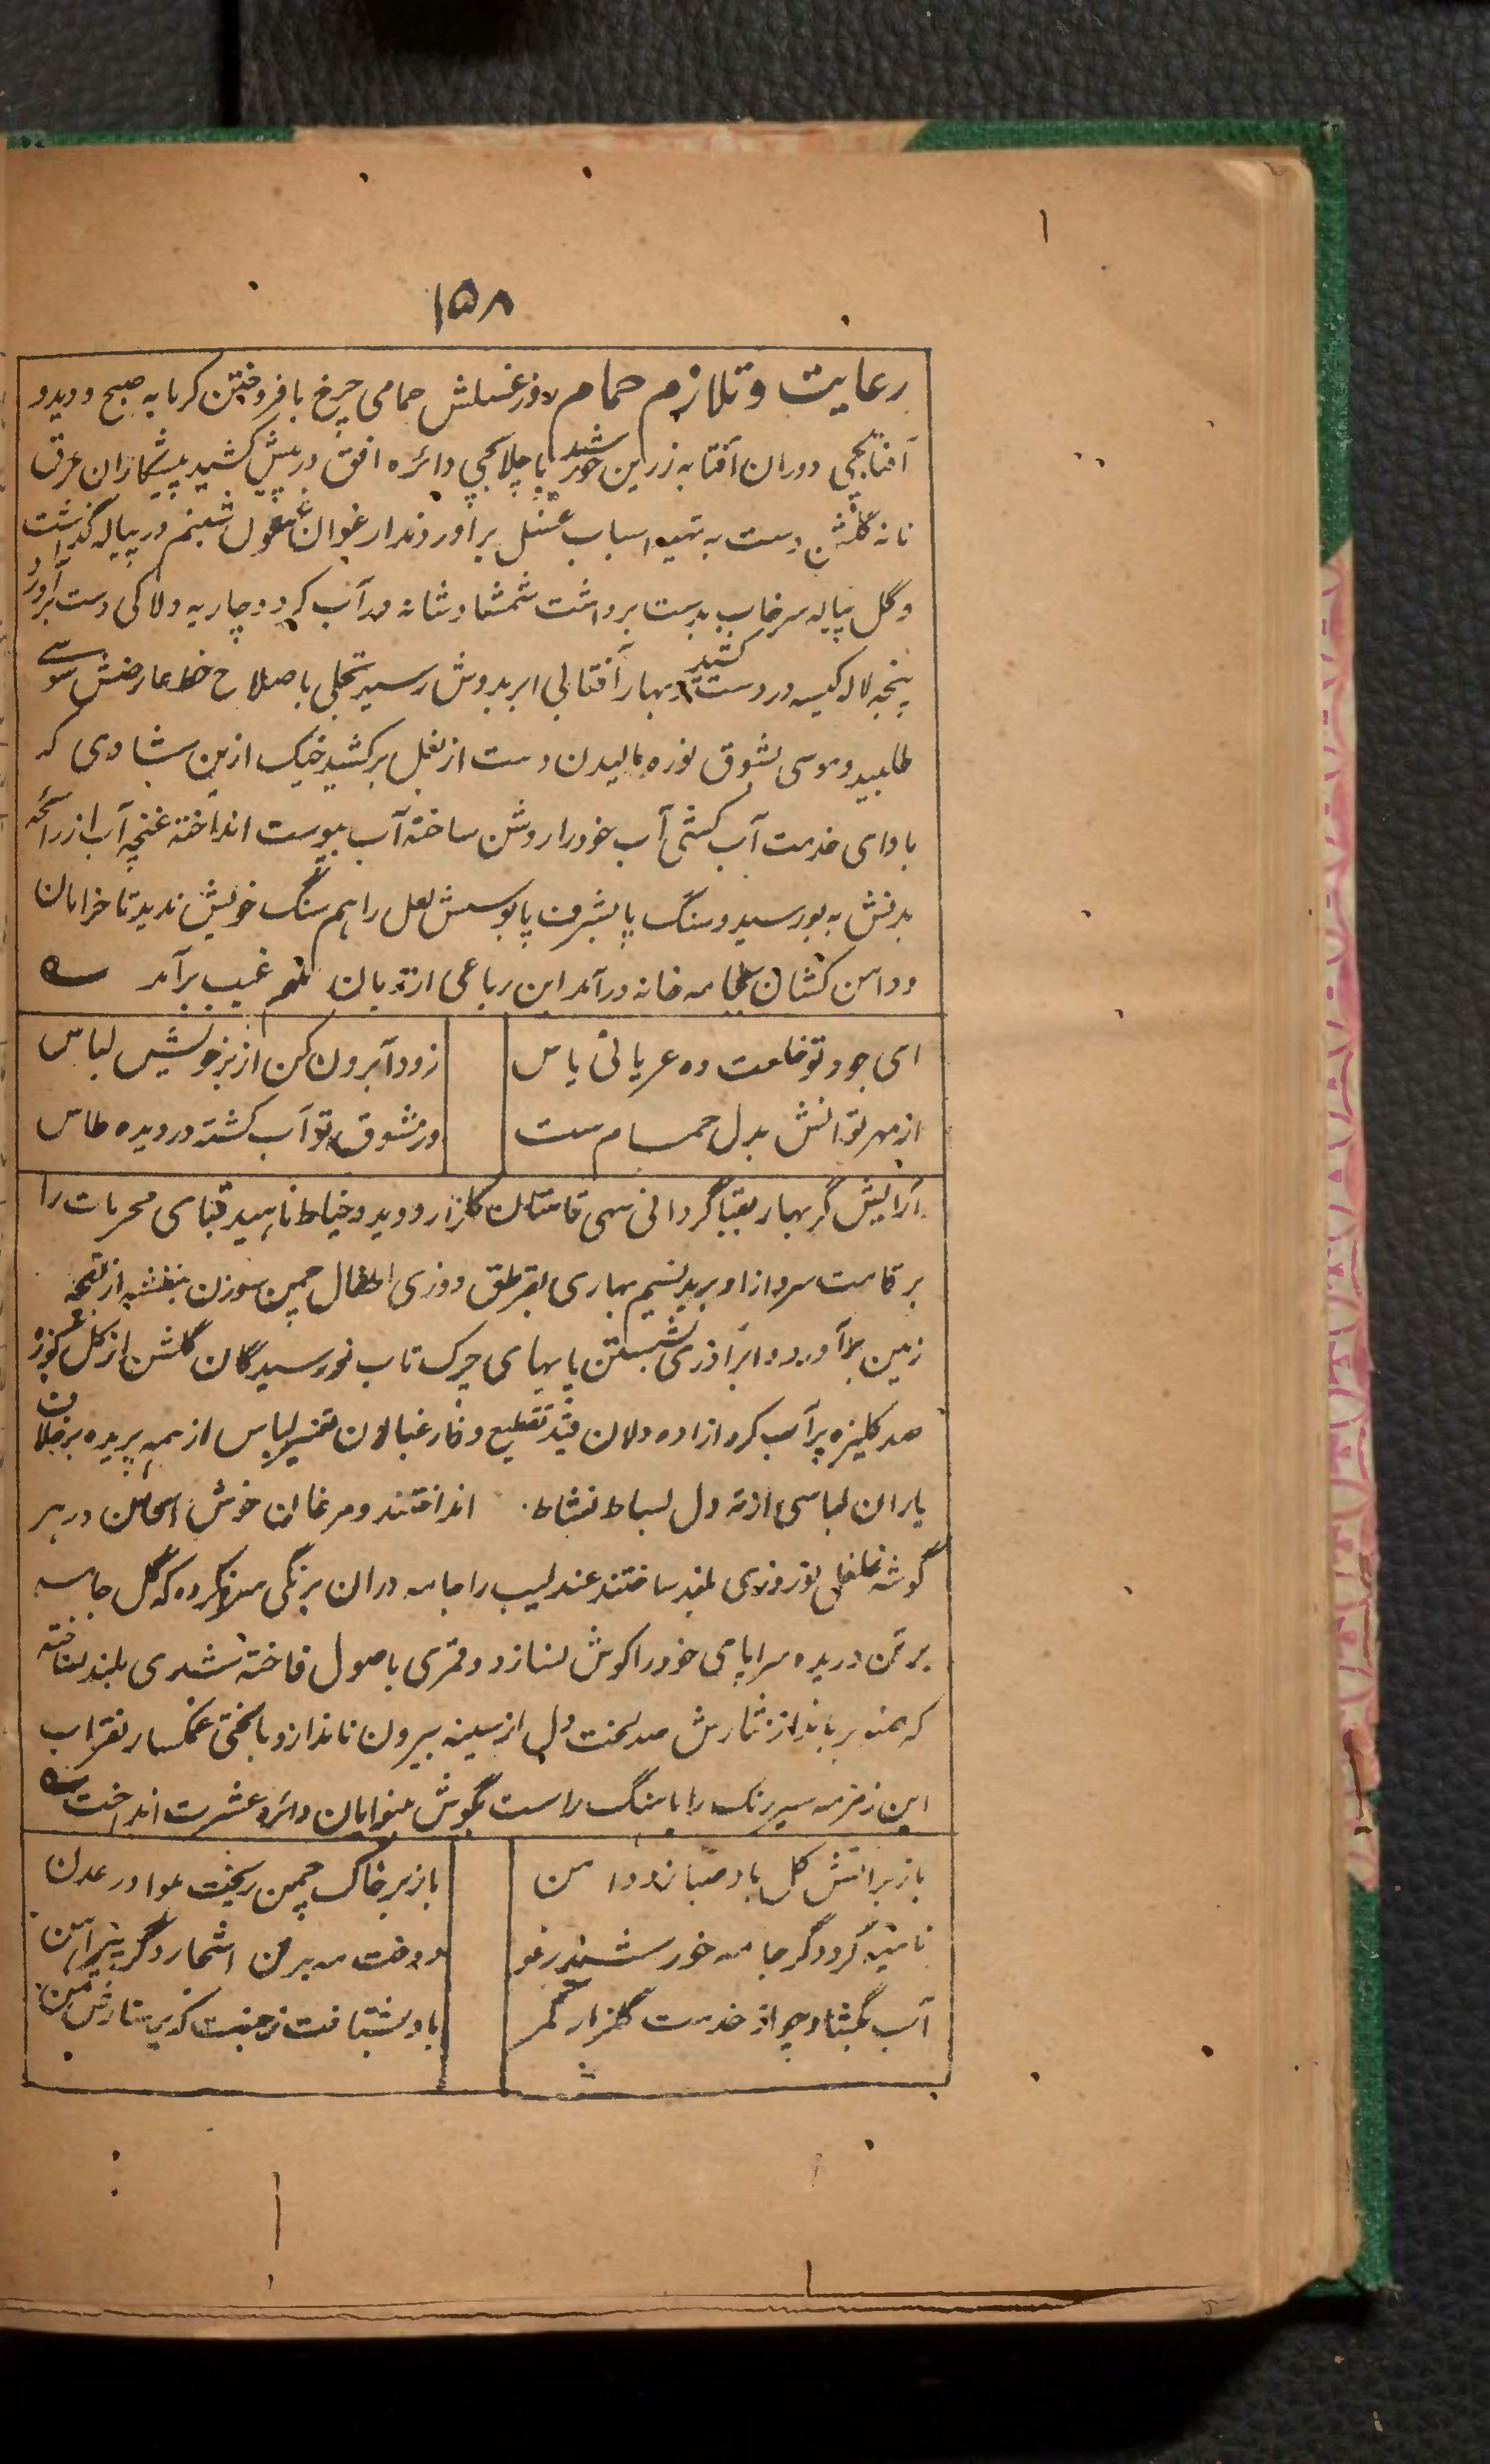 ۱
۱۵۸
رعایت و تلازم حمام روز غسلش حمامی چرخ بافروختن کرمابه صبح دوید و
آفتابچی دوران آفتابه زرین خورشید با چلابچی دائره افق در پیش کشید پیشکاران عرق
نانه گلشن دست به تهیه اسباب غسل برآوردند ارغوان غول شبنم در پیاله گذاشت
و گل پیاله سرخاب بدست برداشت شمشاد شانه در آب کرد و چار به دلاکی دست برآورد
پنجه لاله کیسه در دست کشید و بهار آفتابی ابر بدوش رسید تجلی باصلاح خط عارضش سوی
طلبید و موسی بشوق نوره مالیدن دست از بغل برکشید خیک ازین شادی که
بادای خدمت آب کشی آب خود را روشن ساخته آب بپوست انداخته غنچه آب از رائحه
بدنش به بو رسید و سنگ پا بشرف پابوسش لعل را هم سنگ خویش ندید تا خرامان
و دامن کشان بجامه خانه درآمد این رباعی از زبان ملهم غیب برآمد
ای جود تو خلعت ده عریانی یاس
زود آ برون کن از بر خویش لباس
از مهر تو آتش بدل حمام ست
در شوق تو آب گشته در دیده طاس
آرایش گر بهار بقبا گردانی سهی قامتان گلزار دوید و خیاط ناهید قبای محرمات را
بر قامت سرو ازاد برید نسیم بهاری بقرطق دوزی اطفال چمن سوزن بنفشه از بقچه
زمین برآورد و ابر آذری شستن پایهای چرک تاب نورسیدگان گلشن از گل کوزه
صد کلیزه پر آب کرد ازاده دلان قید تقطیع و فارغبالان تغییر لباس از همه بریده برخلاف
یاران لباسی از ته دل بساط نشاط انداختند و مرغان خوش الحان در هر
گوشه غلغل نوروزی بلند ساختند عندلیب را جامه دران برنگی سر نکرده که گل جامه
بر تن دریده سراپای خود را گوش نسازد و قمری باصول فاخته شدی بلند نساخته
که صنوبر بانداز نثارش صد لخت دل از سینه بیرون ناندازد بالجمله غمگسار تقرب
این زمزمه سیر رنگ را باهنگ راست بگوش بینوایان دائره عشرت انداخت
باز بر آتش گل باد صبا زد دامن
باز بر خاک چمن ریخت هوا در عدن
تا نینه گرد دگر جامه خورشید رفو
دوخت مه بر تن اشجار دگر پیراهن
آب بگشاد چو از خدمت گلزار کمر
باد بشتافت